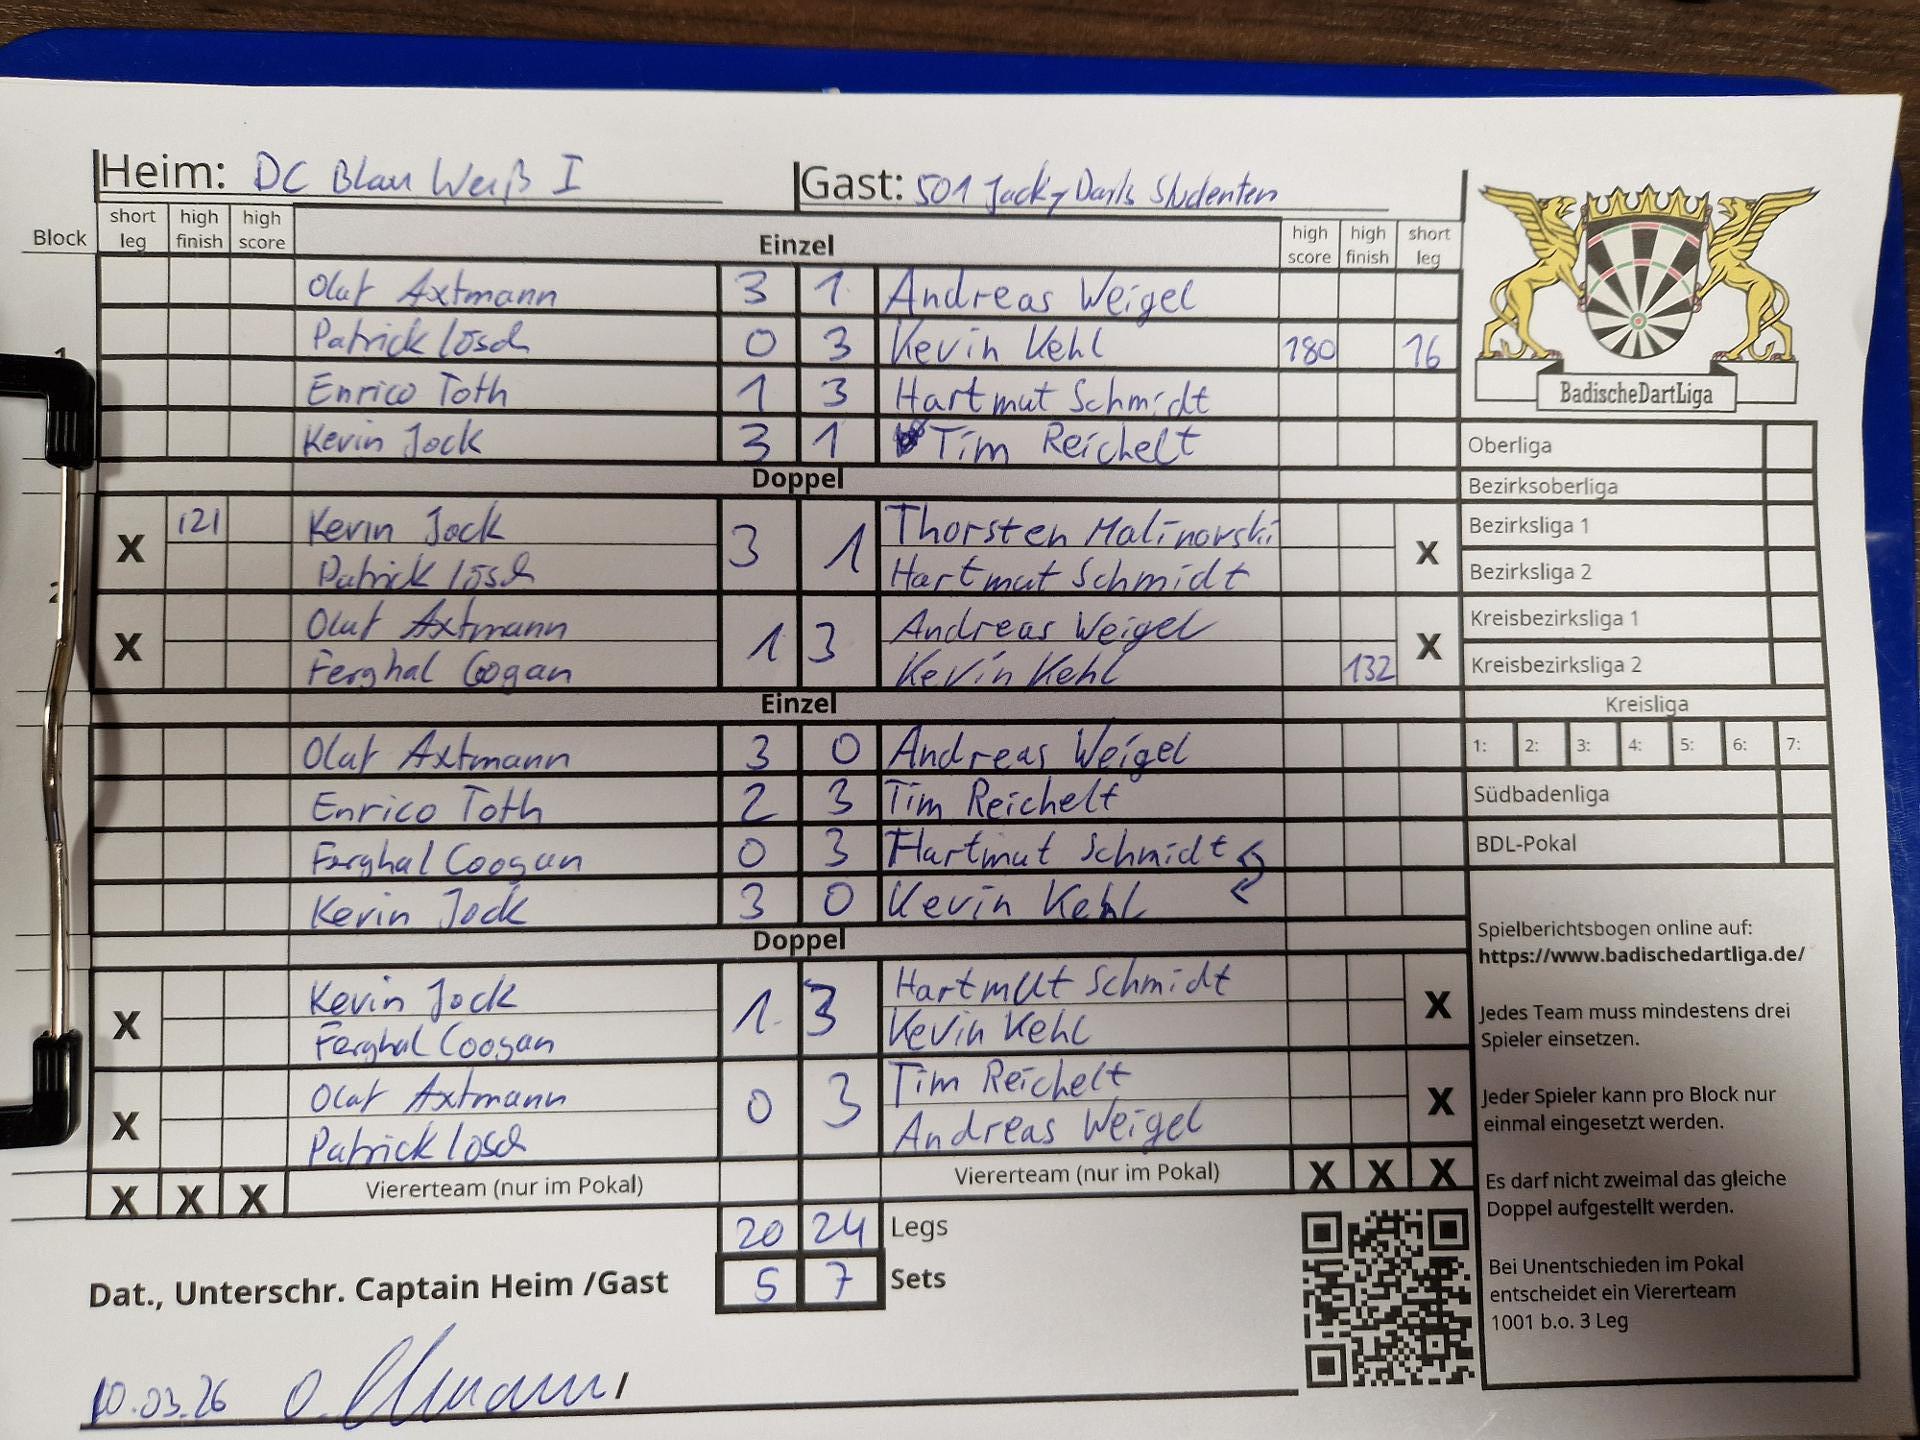 Heim: DC Blau Weiß I Gast: 501 Jacky Darts Studenten
Block short leg high finish high score Einzel high score high finish short leg
Olaf Axtmann 3 1 Andreas Weigel
Patrick Lösch 0 3 Kevin Kehl 180 16
Enrico Toth 1 3 Hartmut Schmidt
Kevin Jock 3 1 Tim Reichelt
Doppel
X 121 Kevin Jock 3 1 Thorsten Malinowski X
Patrick Lösch Hartmut Schmidt
X Olaf Axtmann 1 3 Andreas Weigel X
Ferghal Coogan Kevin Kehl 132
Einzel
Olaf Axtmann 3 0 Andreas Weigel
Enrico Toth 2 3 Tim Reichelt
Ferghal Coogan 0 3 Hartmut Schmidt
Kevin Jock 3 0 Kevin Kehl
Doppel
X Kevin Jock 1 3 Hartmut Schmidt X
Ferghal Coogan Kevin Kehl
X Olaf Axtmann 0 3 Tim Reichelt X
Patrick Lösch Andreas Weigel
X X X Viererteam (nur im Pokal) Viererteam (nur im Pokal) X X X
20 24 Legs
5 7 Sets
Dat., Unterschr. Captain Heim /Gast
10.03.26 /
BadischeDartLiga
Oberliga
Bezirksoberliga
Bezirksliga 1
Bezirksliga 2
Kreisbezirksliga 1
Kreisbezirksliga 2
Kreisliga
1: 2: 3: 4: 5: 6: 7:
Südbadenliga
BDL-Pokal
Spielberichtsbogen online auf:
https://www.badischedartliga.de/
Jedes Team muss mindestens drei
Spieler einsetzen.
Jeder Spieler kann pro Block nur
einmal eingesetzt werden.
Es darf nicht zweimal das gleiche
Doppel aufgestellt werden.
Bei Unentschieden im Pokal
entscheidet ein Viererteam
1001 b.o. 3 Leg